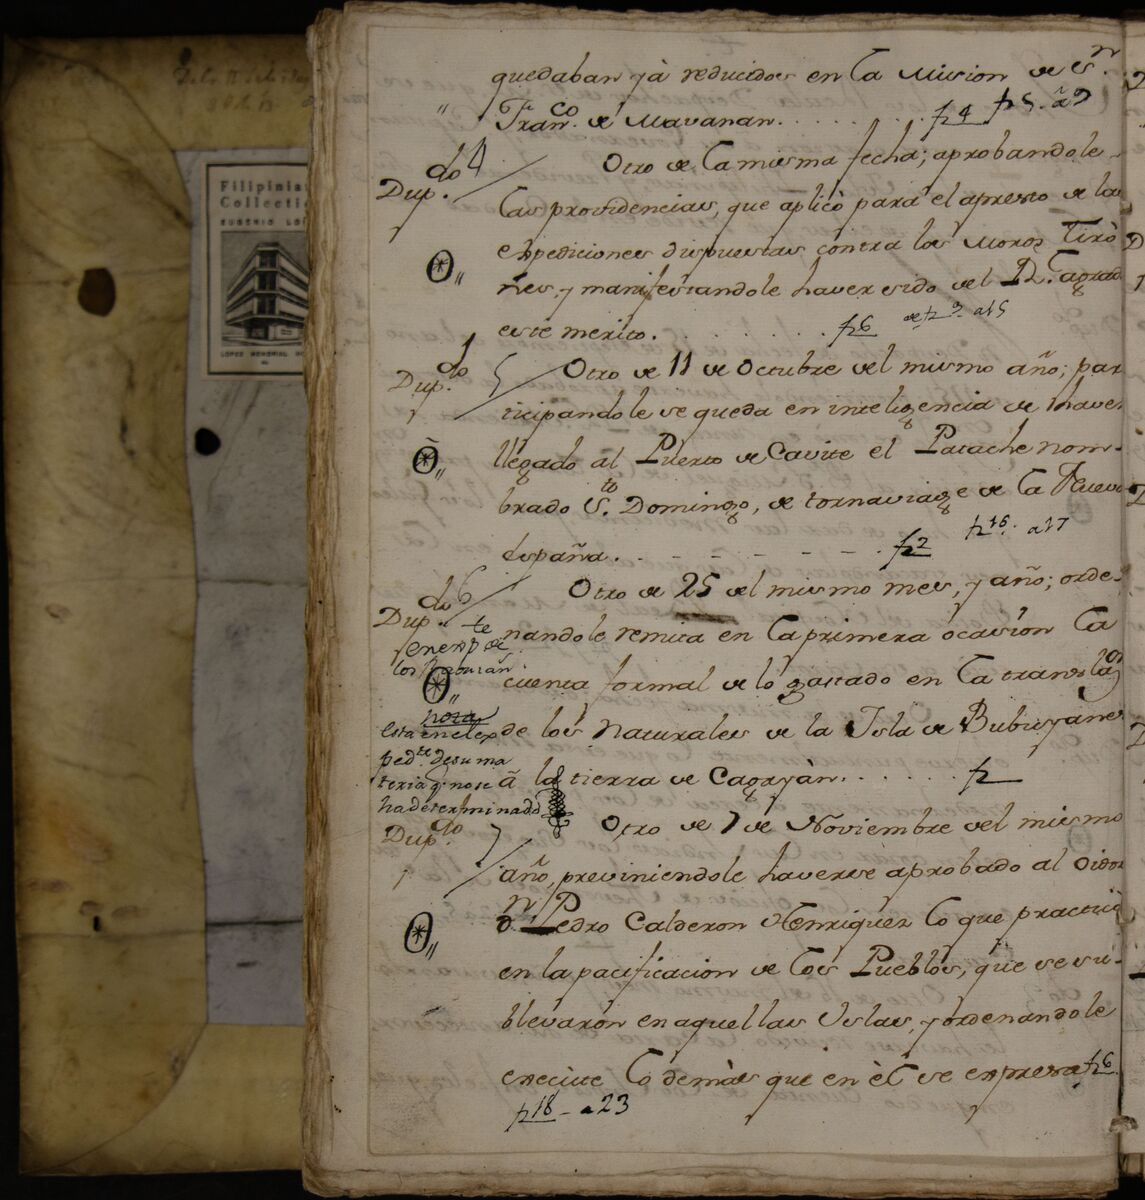 Filipinia
Collecti
EUGENIO LO
LOPEZ MEMORIAL M
quedaban yà reducidos en la Mision de Sn
Franco. de Mavanan. f 4 f 5. a 9
Dupdo. 4 Otro de la misma fecha; aprobandole
las providencias, que aplicò para el apresto de las
expediciones dispuestas contra los Moros Tiro
nes, y manifestandole haver sido del Rl. agrado
este merito. f 6 de f 9. a 15
Dupdo. 5 Otro de 11 de Octubre del mismo año; par
ticipandole se queda en inteligencia de haver
llegado al Puerto de Cavite el Patache nom-
brado Sto. Domingo, de tornaviage de la Nueva
España. f 2 f 16. a 17
Dupdo. 6 Otro de 25 del mismo mes, y año; orde-
nandole remita en la primera ocasion la
cuenta formal de lo gastado en la translaon
de los Naturales de la Isla de Bubuyanes
â la tierra de Cagayàn. f
en expte de
los
nota
esta en el ex
pedte. de su ma
teria q. no se
ha determinado
Dupdo. 7 Otro de 7 de Noviembre del mismo
año, previniendole haverse aprobado al Oidor
Dn. Pedro Calderon Henriquez lo que practicò
en la pacificacion de los Pueblos, que se su-
blevaron en aquellas Islas, y ordenandole
execute lo demàs que en èl se expresa f 6
f 18 - a 23